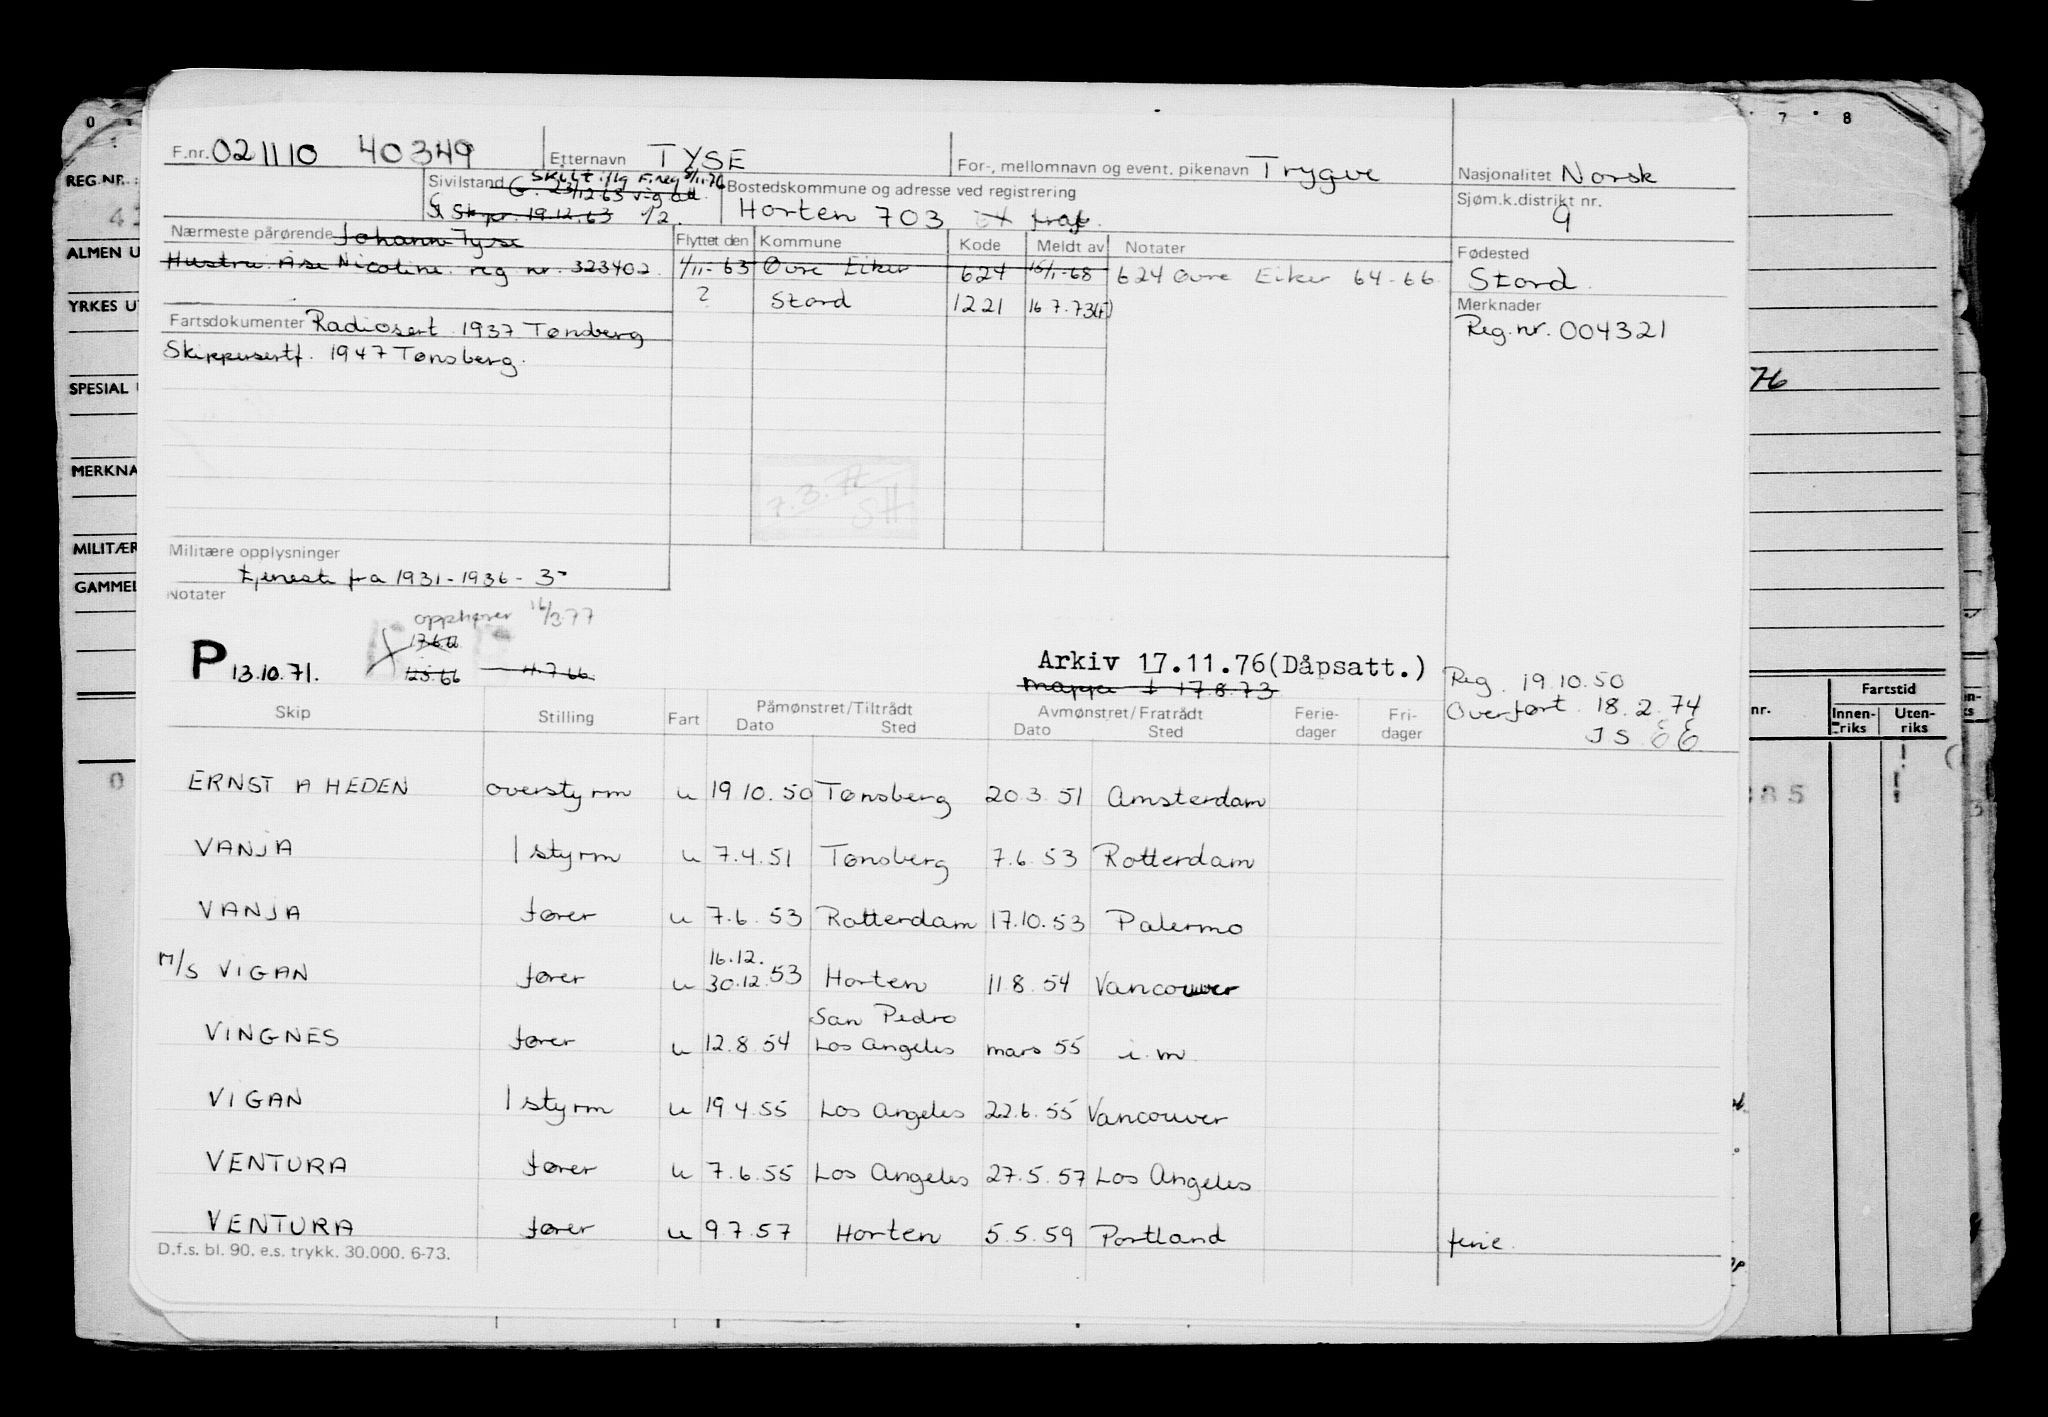 F.nr. 021110 40349 Etternavn TYSE For-, mellomnavn og event. pikenavn Trygve Nasjonalitet Norsk
Sivilstand Skilt iflg F.reg 8/11-76
G. 23/12.65 v-g att.
S Skpr. 19.12.63 1/2
Bostedskommune og adresse ved registrering
Horten 703
Sjøm.k.distrikt nr.
9
Nærmeste pårørende Johann Tyse
Hustru Åse Nicoline reg nr. 323402
Flyttet den Kommune Kode Meldt av Notater
1/11-63 Øvre Eiker 624 15/1-68 624 Øvre Eiker 64-66
? Stord 1221 16 7.73(F)
Fødested
Stord
Merknader
Reg.nr. 004321
Fartsdokumenter Radiosert. 1937 Tønsberg
Skippersertf. 1947 Tønsberg.
7.3.72
SH
Militære opplysninger
tjeneste fra 1931-1936 - 3-
Notater
opphører 16/3.77
P 13.10.71.
12.5.66 4.7.66
Arkiv 17.11.76(Dåpsatt.)
mappe 17.8.73
Reg. 19.10.50
Overført 18.2.74
JS EE
Skip Stilling Fart Påmønstret/Tiltrådt Dato Sted Avmønstret/Fratrådt Dato Sted Ferie-dager Fri-dager
ERNST A HEDEN overstyrm u 19.10.50 Tønsberg 20.3.51 Amsterdam
VANJA 1 styrm u 7.4.51 Tønsberg 7.6.53 Rotterdam
VANJA fører u 7.6.53 Rotterdam 17.10.53 Palermo
M/S VIGAN fører u 16.12. 30.12.53 Horten 11.8.54 Vancouver
VINGNES fører u 12.8.54 San Pedro Los Angeles mars 55 i.m.
VIGAN 1 styrm u 19.4.55 Los Angeles 22.6.55 Vancouver
VENTURA fører u 7.6.55 Los Angeles 27.5.57 Los Angeles
VENTURA fører u 9.7.57 Horten 5.5.59 Portland ferie.
D.f.s. bl. 90. e.s. trykk. 30.000. 6-73.
0
REG.NR.
ALMEN U
YRKES U
SPESIAL
MERKNA
MILITÆR
GAMMEL
0
7 8
76
nr.
Fartstid
Innen-riks
Uten-riks